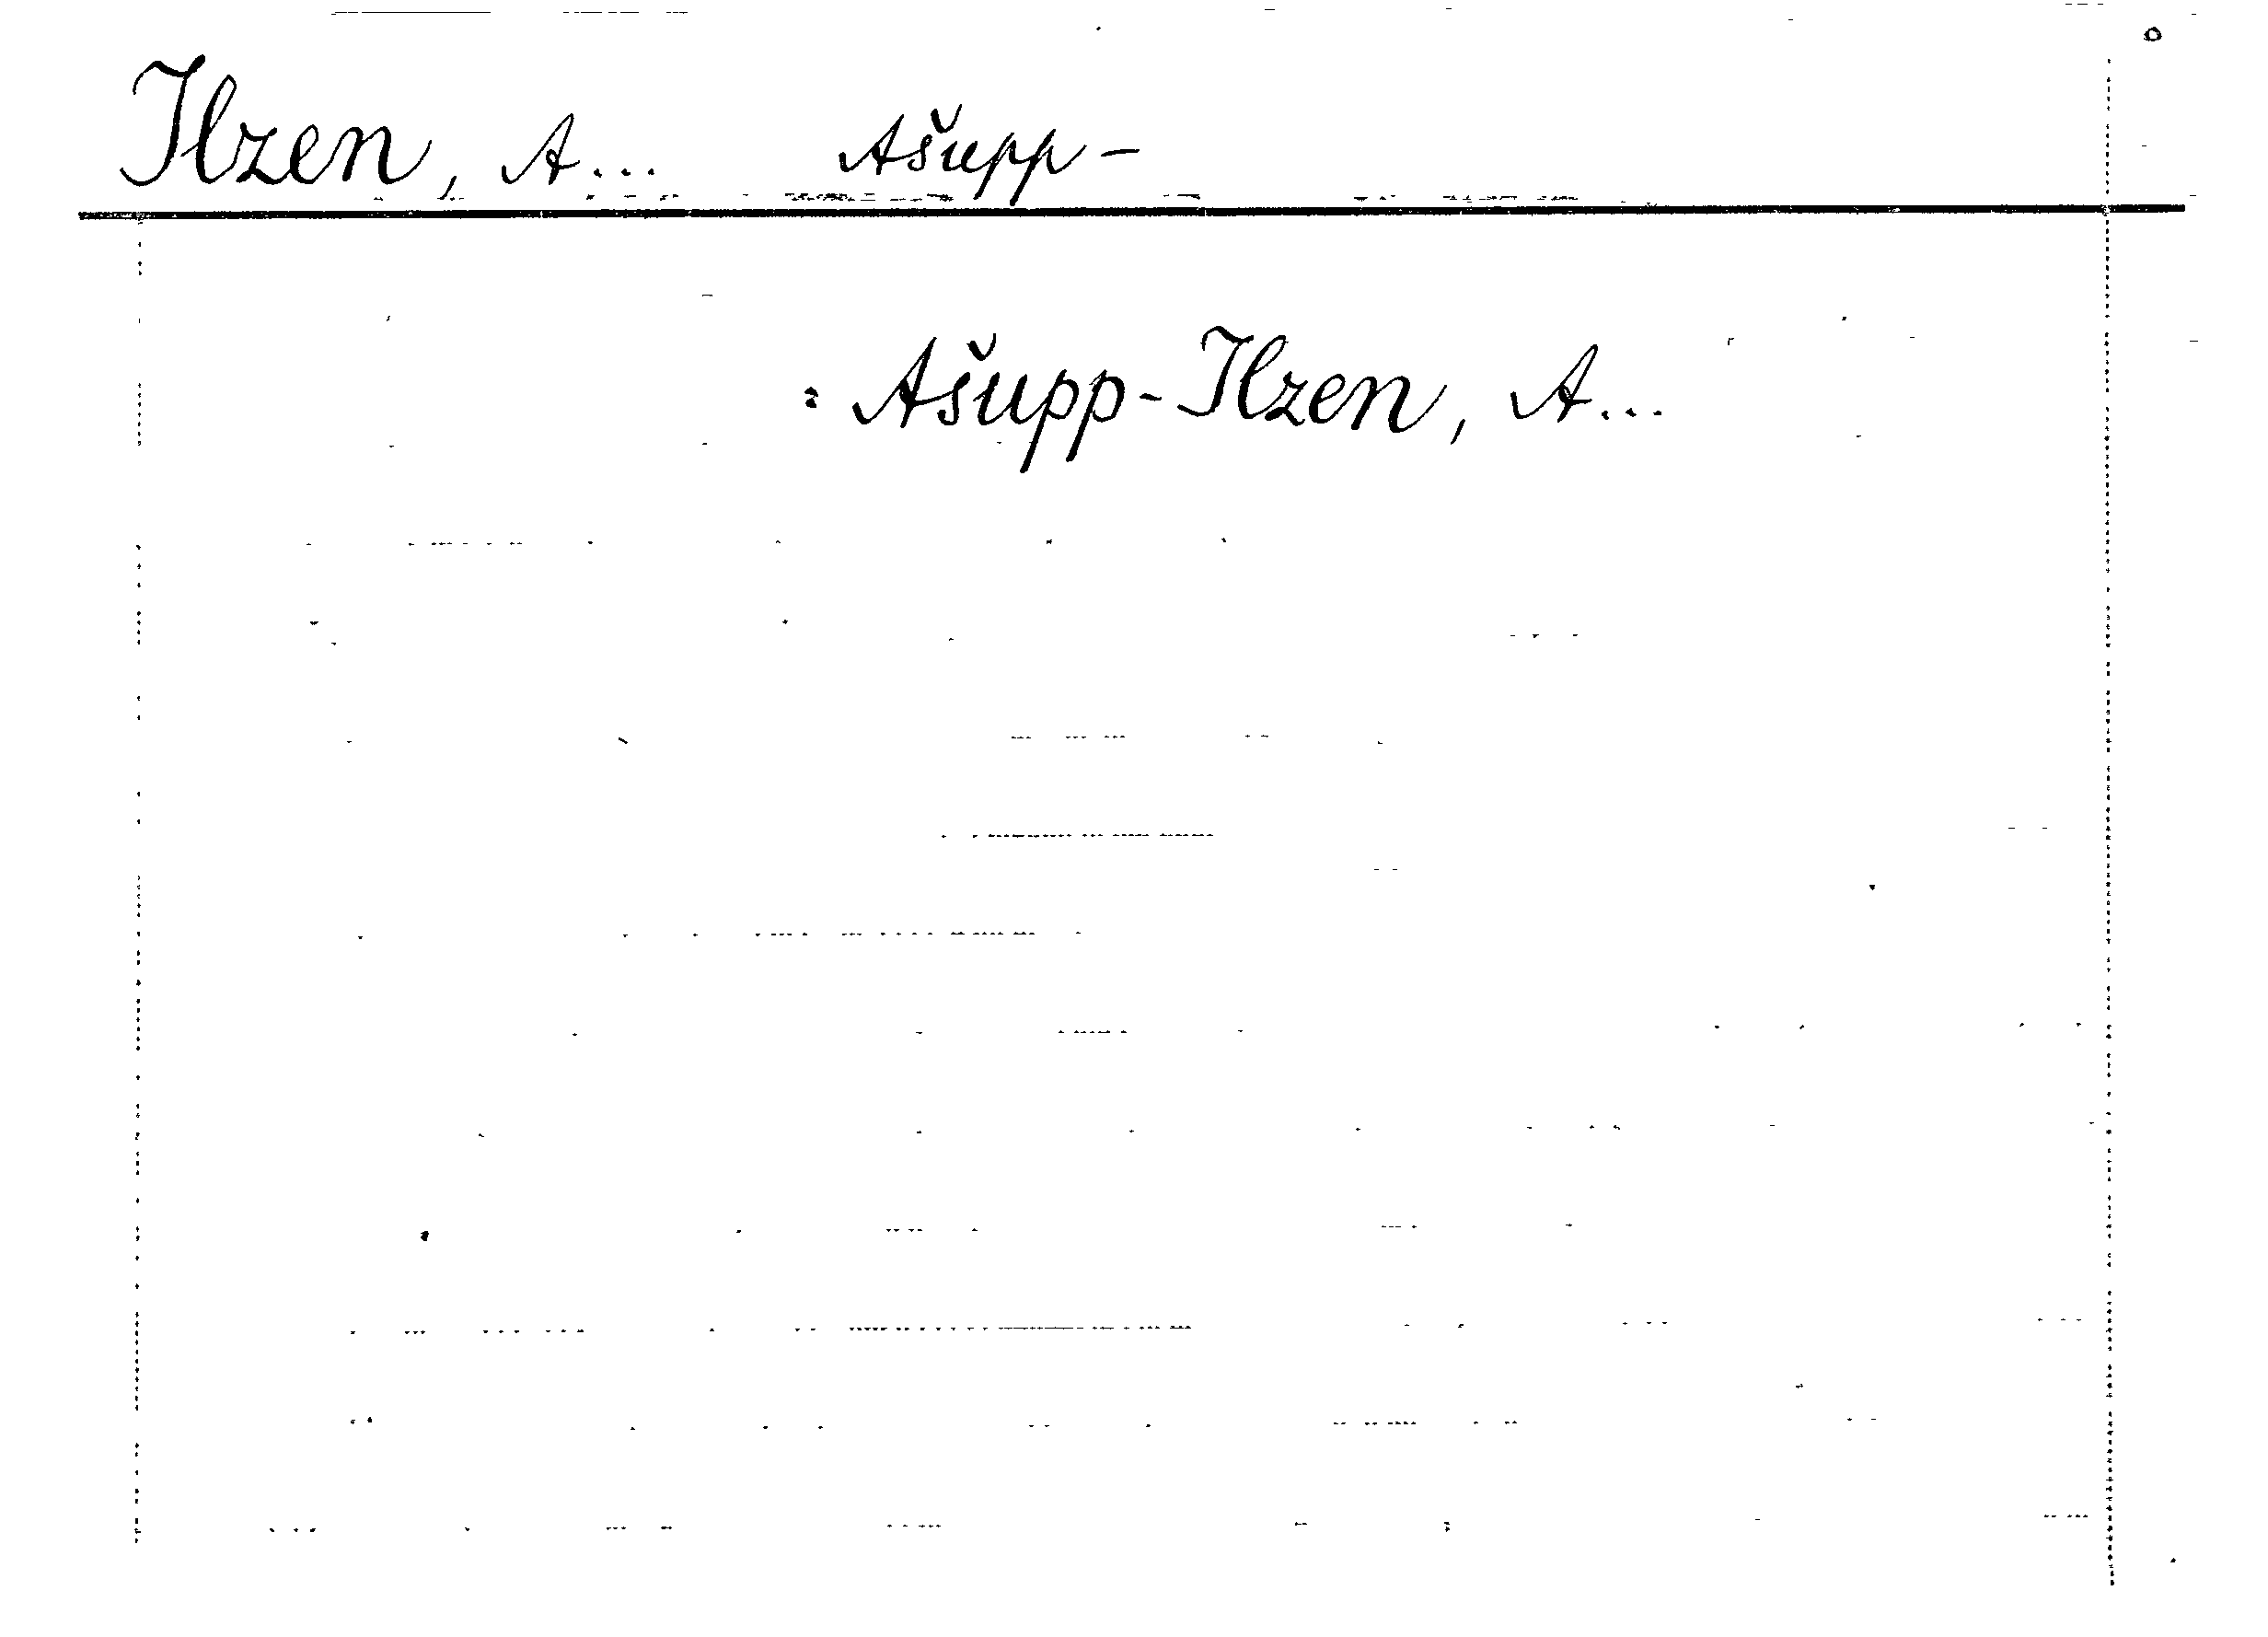 Ilzen, A... Ašupp-
: Ašupp-Ilzen, A...